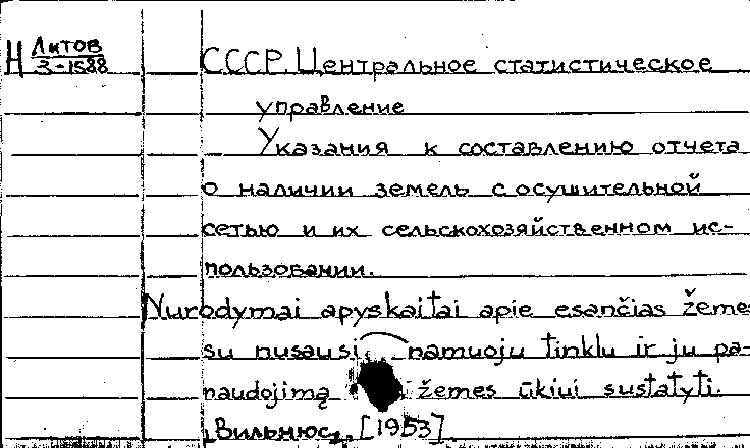 Н Литов
3-1588
СССР. Центральное статистическое
управление
Указания к составлению отчета
о наличии земель с осушительной
сетью и их сельскохозяйственном ис-
пользовании.
Nurodymai apyskaitai apie esančias žemes
su nusausi namuoju tinklu ir ju pa-
naudojimą žemes ūkiui sustatyti.
Вильнюс, [1953]